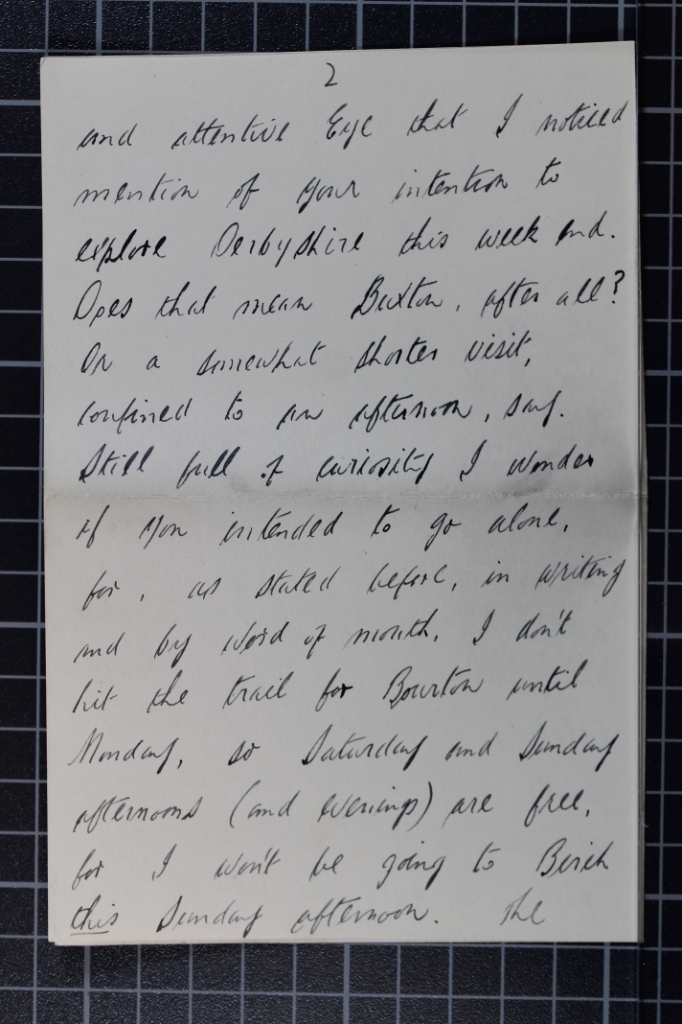 2
and attentive Eye that I noticed
mention of your intention to
explore Derbyshire this week end.
Does that mean Buxton, after all?
Or a somewhat shorter visit,
confined to an afternoon, say.
Still full of curiosity I wonder
if you intended to go alone,
for, as stated before, in writing
and by word of mouth, I don't
hit the trail for Bourton until
Monday, so Saturday and Sunday
afternoons (and evenings) are free,
for I won't be going to Birch
this Sunday afternoon. The